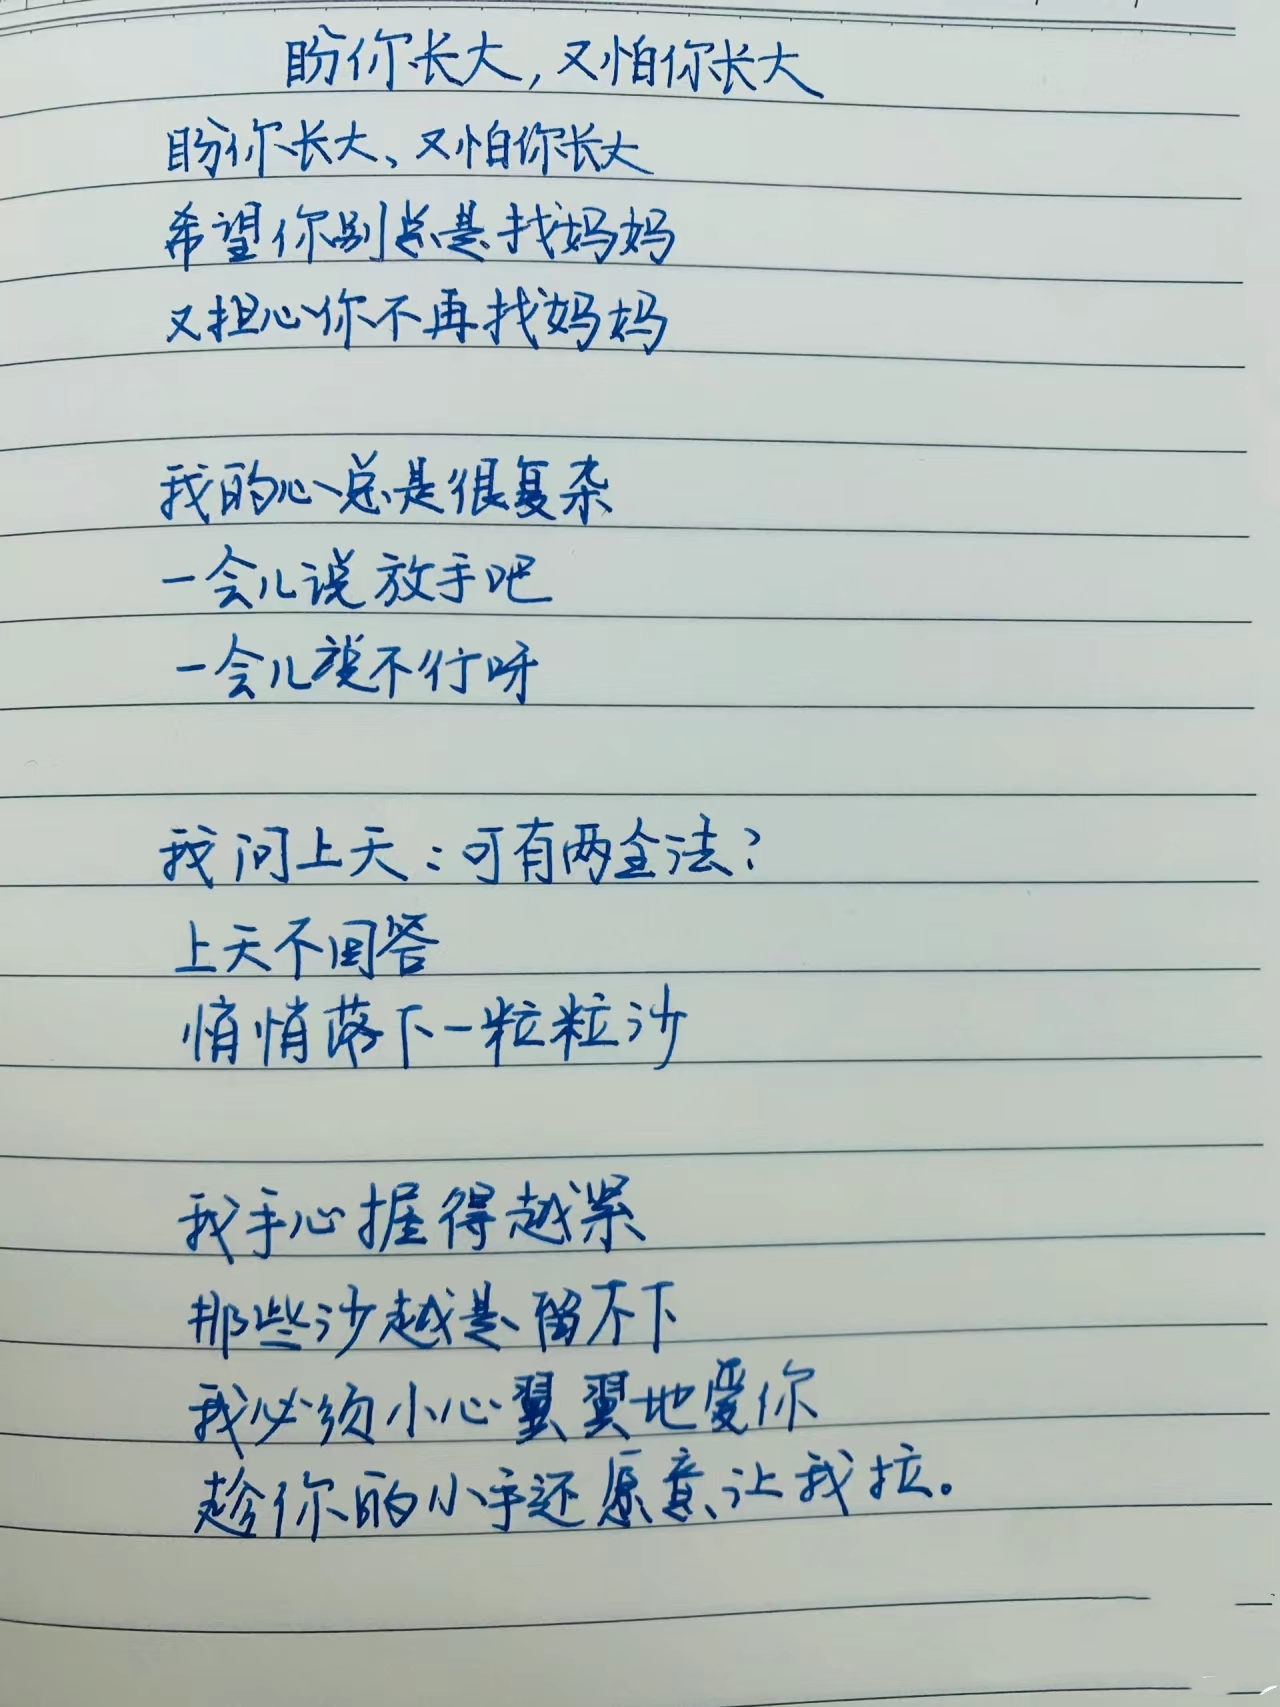 盼你长大,又怕你长大
盼你长大、又怕你长大
希望你别总是找妈妈
又担心你不再找妈妈
我的心总是很复杂
一会儿说放手吧
一会儿说不行呀
我问上天:可有两全法?
上天不回答
悄悄落下一粒粒沙
我手心握得越紧
那些沙越是留不下
我必须小心翼翼地爱你
趁你的小手还愿意让我拉。